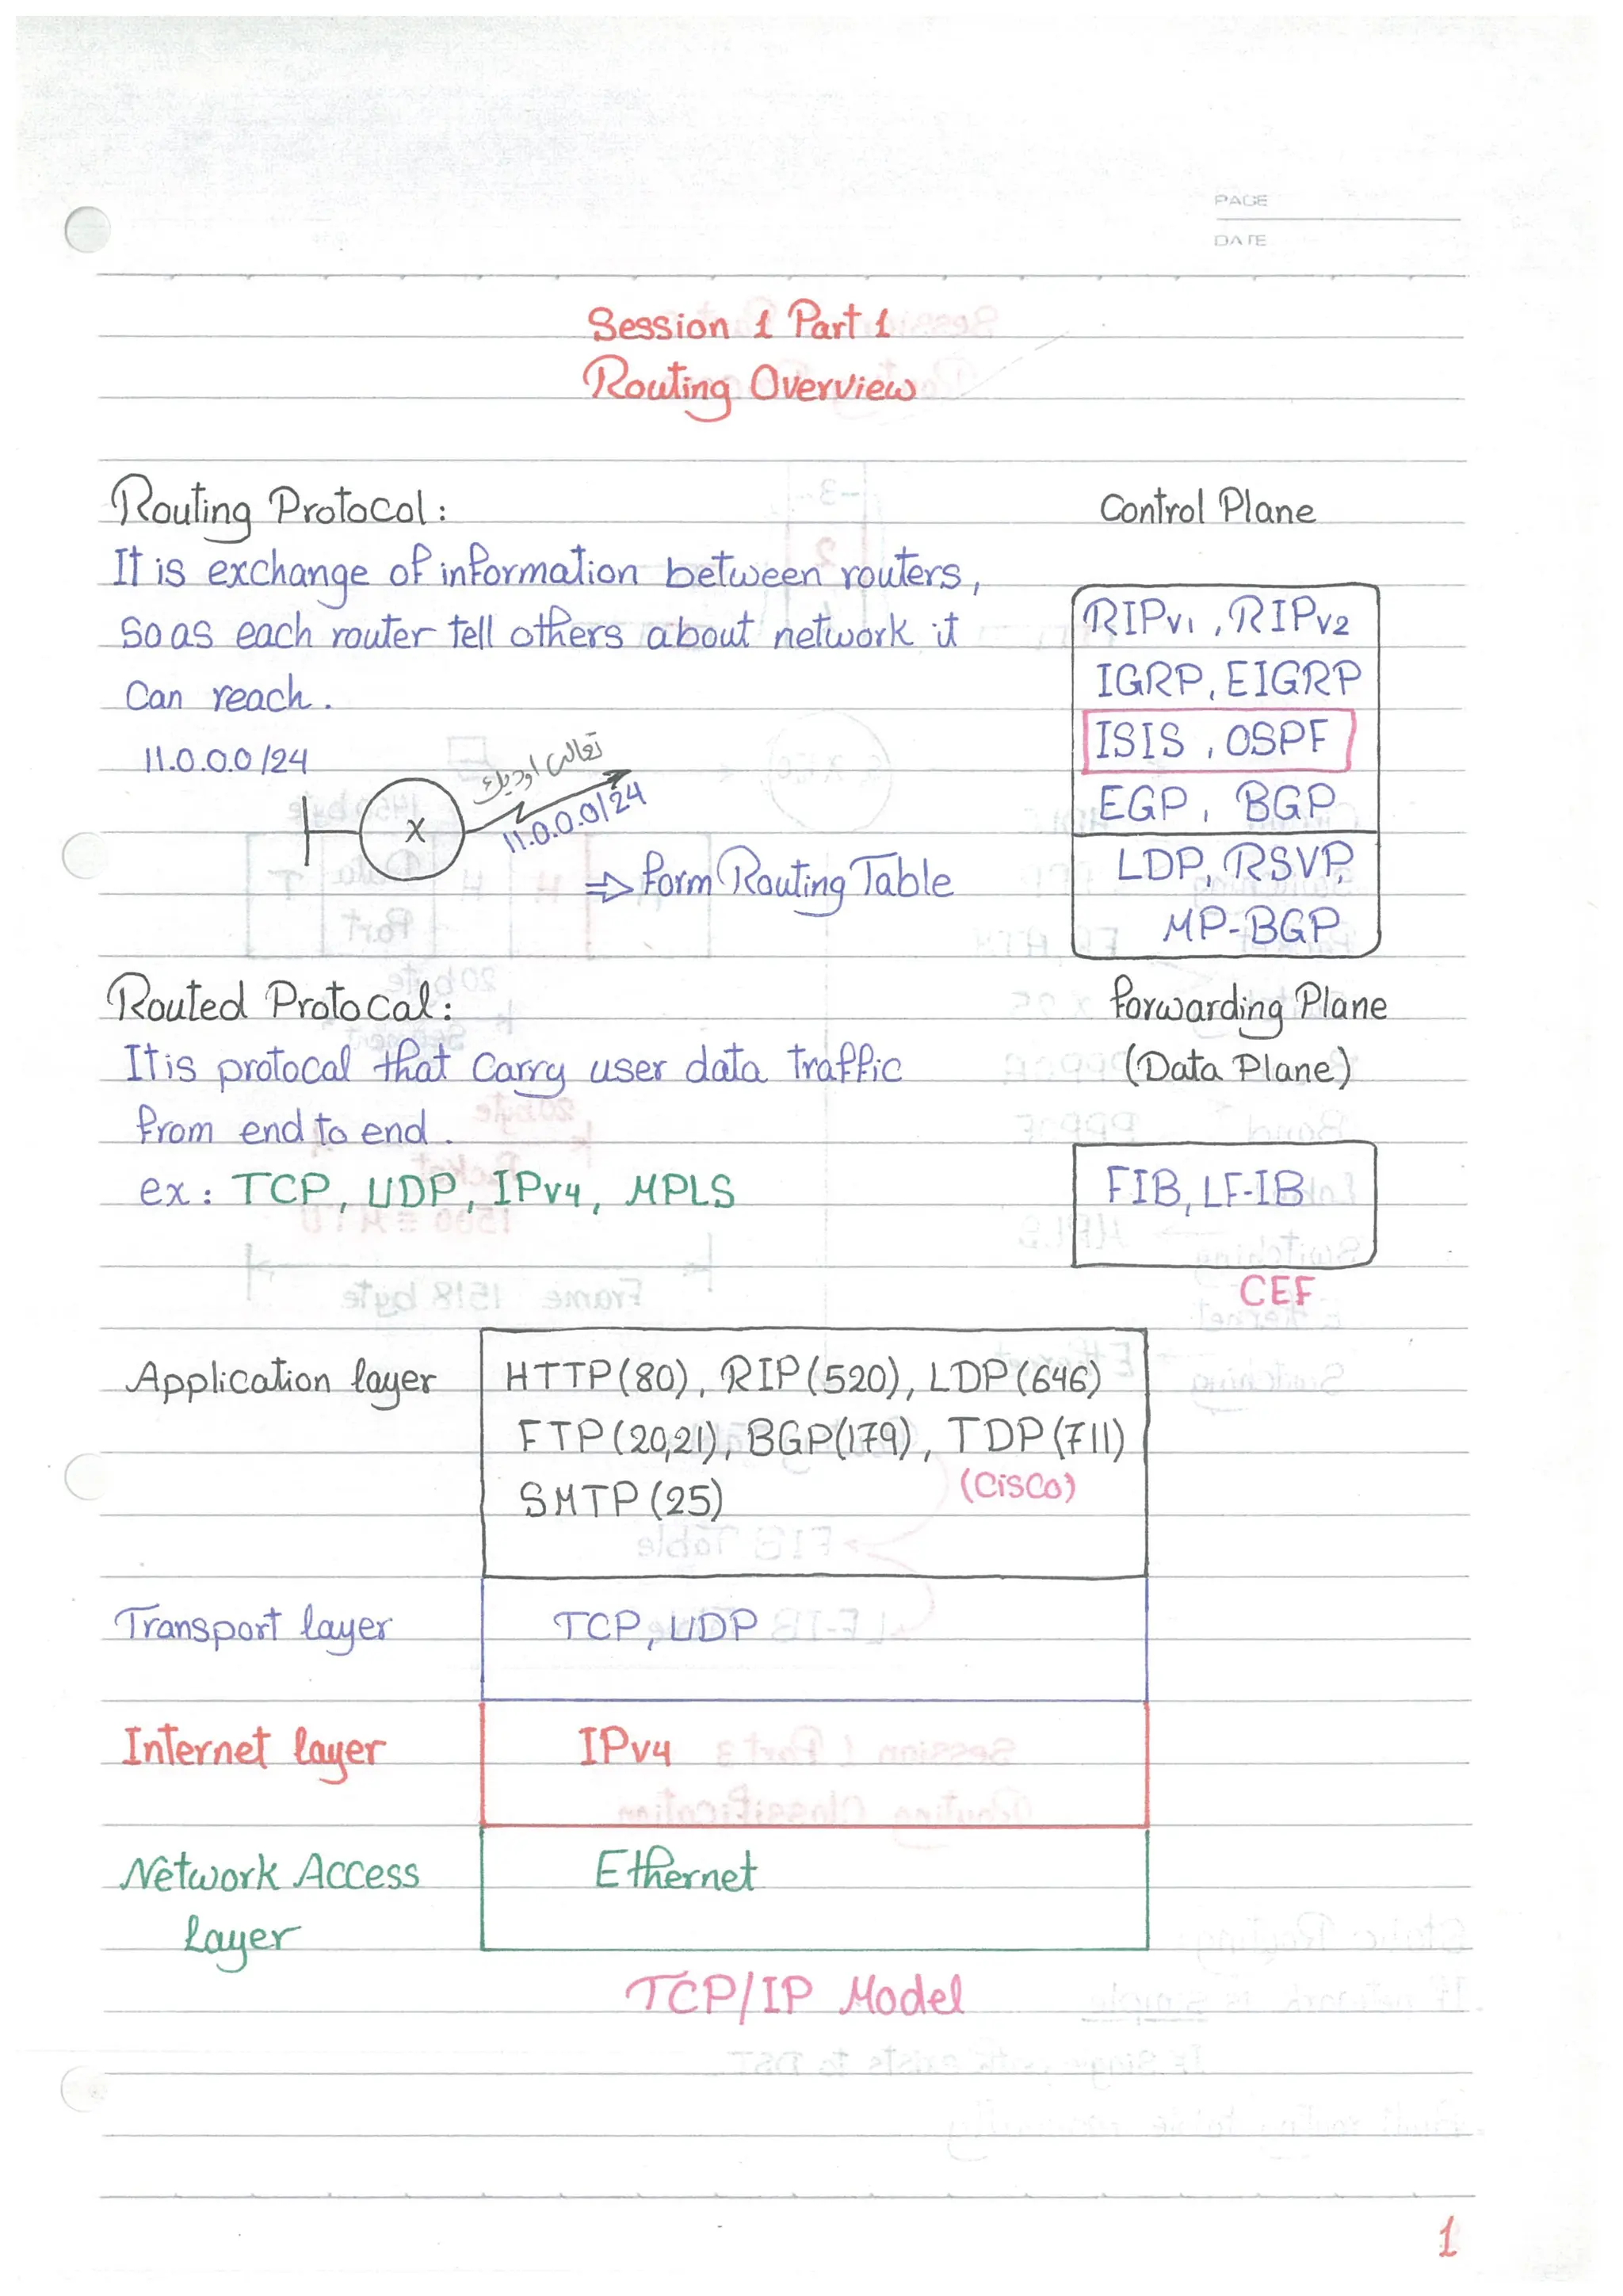 PAGE
DATE
Session 1 Part 1
Routing Overview
Routing Protocal:
It is exchange of information between routers,
so as each router tell others about network it
can reach.
11.0.0.0/24
X
تعالى اوديك
11.0.0.0/24
⇒ form Routing Table
Control Plane
RIPv1, RIPv2
IGRP, EIGRP
ISIS, OSPF
EGP, BGP
LDP, RSVP,
MP-BGP
Routed Protocal:
It is protocal that carry user data traffic
from end to end.
ex: TCP, UDP, IPv4, MPLS
forwarding Plane
(Data Plane)
FIB, LF-IB
CEF
Application layer
HTTP(80), RIP(520), LDP(646)
FTP(20,21), BGP(179), TDP(711)
SMTP(25) (Cisco)
Transport layer TCP, UDP
Internet layer IPv4
Network Access Ethernet
layer
TCP/IP Model
1